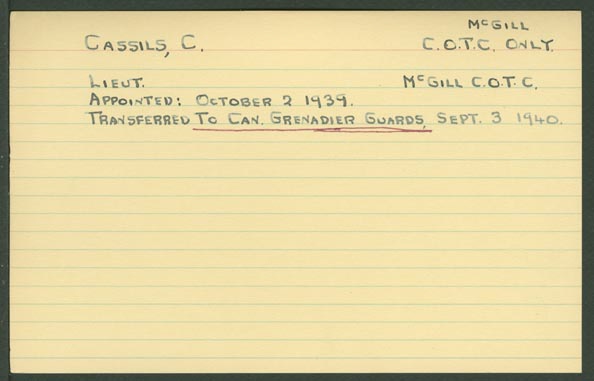 McGILL
CASSILS, C. C.O.T.C. ONLY.
LIEUT. McGILL C.O.T.C.
APPOINTED: OCTOBER 2 1939.
TRANSFERRED TO CAN. GRENADIER GUARDS, SEPT. 3 1940.